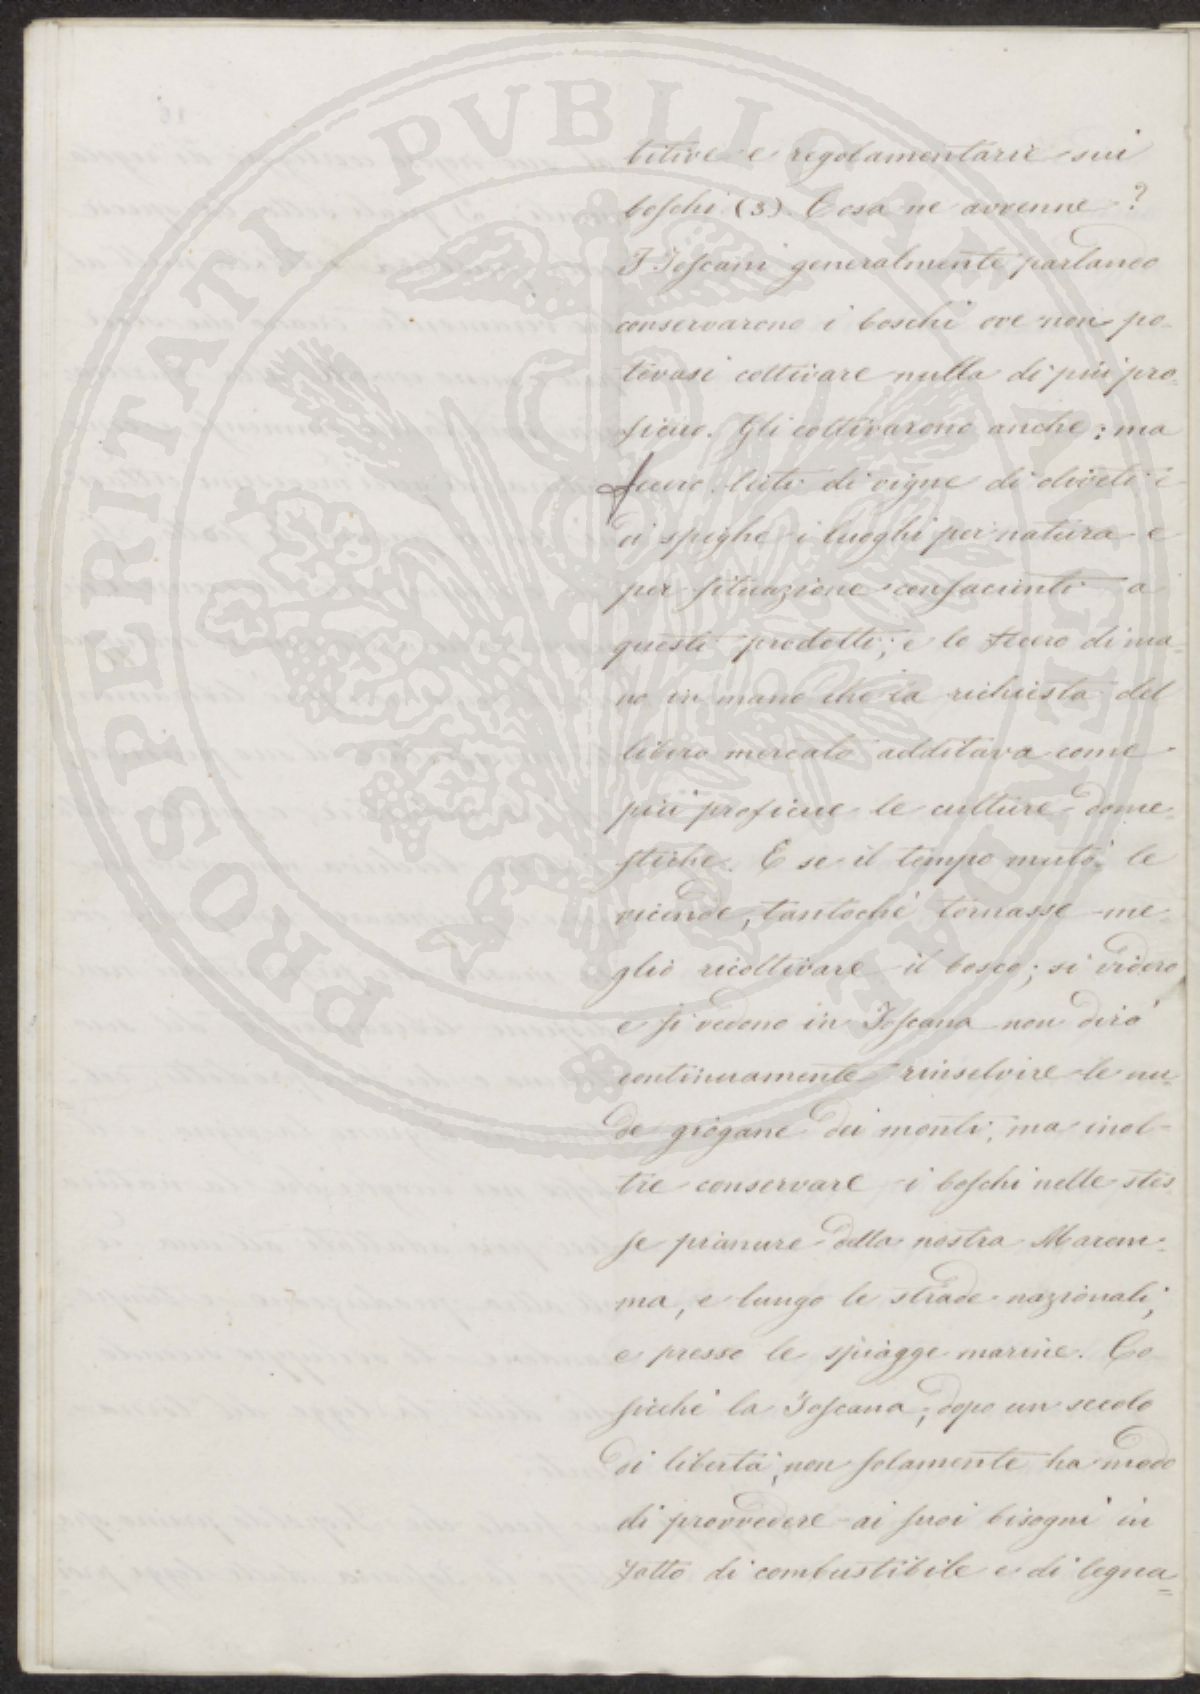 bitive e regolamentarie sui
boschi (3). Cosa ne avvenne?
I Toscani generalmente parlando
conservarono i boschi ove non po-
tevasi coltivare nulla di più pro-
ficuo. Gli coltivarono anche; ma
fecero lieti di vigne di oliveti e
di spighe i luoghi per natura e
per situazione confacienti a
questi prodotti; e lo fecero di ma-
no in mano che la richiesta del
libero mercato additava come
più proficue le culture dome-
stiche. E se il tempo mutò le
vicende, tantochè tornasse me-
glio ricoltivare il bosco; si videro
e si vedono in Toscana non dirò
continuamente rinselvire le nu-
de giogane dei monti, ma inol-
tre conservare i boschi nelle stes
se pianure della nostra Marem-
ma, e lungo le strade nazionali,
e presso le spiagge marine. Co
sicchè la Toscana, dopo un secolo
di libertà, non solamente ha modo
di provvedere ai suoi bisogni in
fatto di combustibile e di legna-
PROSPERITATI PVBLICAE AVGENDAE